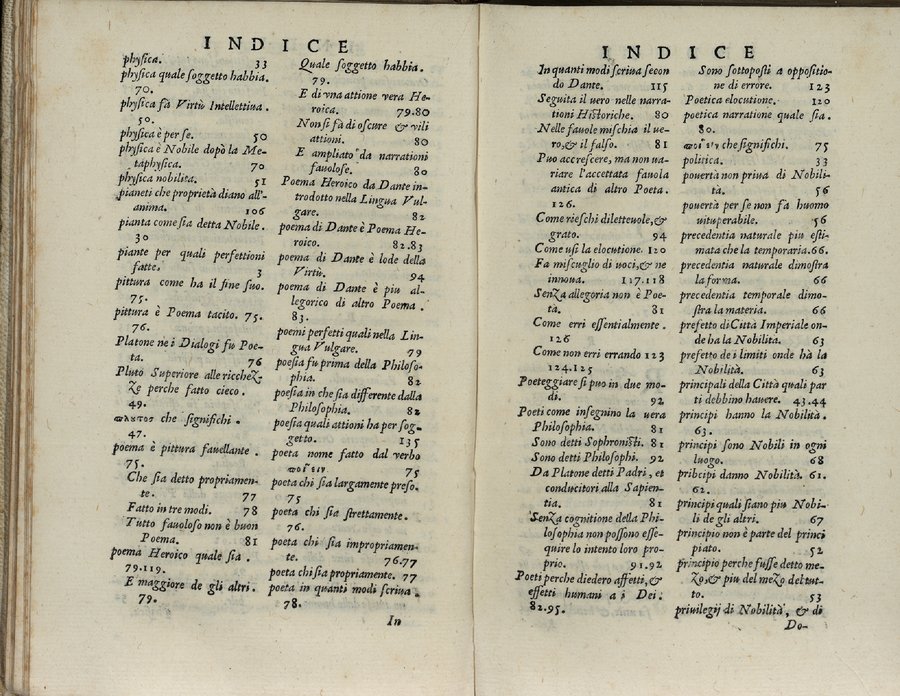 INDICE
physica. 33
physica quale soggetto habbia.
70.
physica fà Virtù Intellettiua.
50.
physica è per se. 50
physica è Nobile dopò la Me-
taphysica. 70
physica nobilita. 51
pianeti che proprietà diano all'-
anima. 106
pianta come sia detta Nobile.
30
piante per quali perfettioni
fatte. 3
pittura come ha il fine suo.
75.
pittura è Poema tacito. 75.
76.
Platone ne i Dialogi fu Poe-
ta. 76
Pluto Superiore alle ricchez-
ze perche fatto cieco.
49.
che significhi.
47.
poema è pittura fauellante.
75.
Che sia detto propriamen-
te. 77
Fatto in tre modi. 78
Tutto fauoloso non è buon
Poema. 81
poema Heroico quale sia.
79.119.
E maggiore de gli altri.
79.
Quale soggetto habbia.
79.
E di vna attione vera He-
roica. 79.80
Non si fà di oscure & vili
attioni. 80
E ampliato da narrationi
fauolose. 80
Poema Heroico da Dante in-
trodotto nella Lingua Vul-
gare. 82
poema di Dante è Poema He-
roico. 82.83
poema di Dante è lode della
Virtù. 94
poema di Dante è piu al-
legorico di altro Poema.
83.
poemi perfetti quali nella Lin-
gua Vulgare. 79
poesia fu prima della Philoso-
phia. 82
poesia in che sia differente dalla
Philosophia. 82
poesia quali attioni ha per sog-
getto. 135
poeta nome fatto dal verbo
75
poeta chi sia largamente preso.
75
poeta chi sia strettamente.
76.
poeta chi sia impropriamen-
te. 76.77
poeta chi sia propriamente. 77
poeta in quanti modi scriua.
78.
In
INDICE
In quanti modi scriua secon
do Dante. 115
Seguita il uero nelle narra-
tioni Historiche. 80
Nelle fauole mischia il ue-
ro, & il falso. 81
Puo accrescere, ma non ua-
riare l'accettata fauola
antica di altro Poeta.
126.
Come rieschi diletteuole, &
grato. 94
Come usi la elocutione. 120
Fa miscuglio di uoci, & ne
innoua. 117.118
Senza allegoria non è Poe-
ta. 81
Come erri essentialmente.
126
Come non erri errando 123
124.125
Poeteggiare si puo in due mo-
di. 92
Poeti come insegnino la uera
Philosophia. 81
Sono detti Sophronisti. 81
Sono detti Philosophi. 92
Da Platone detti Padri, et
conducitori alla Sapien-
tia. 81
Senza cognitione della Phi-
losophia non possono esse-
quire lo intento loro pro-
prio. 91.92
Poeti perche diedero affetti, &
effetti humani a i Dei.
82.95.
Sono sottoposti a oppositio-
ne di errore. 123
Poetica elocutione. 120
poetica narratione quale sia.
80.
che significhi. 75
politica. 33
pouertà non priua di Nobili-
tà. 56
pouertà per se non fa huomo
uituperabile. 56
precedentia naturale piu esti-
mata che la temporaria. 66.
precedentia naturale dimostra
la forma. 66
precedentia temporale dimo-
stra la materia. 66
prefetto di Città Imperiale on-
de ha la Nobilita. 63
prefetto de i limiti onde hà la
Nobilità. 63
principali della Città quali par
ti debbino hauere. 43.44
principi hanno la Nobilità.
63.
principi sono Nobili in ogni
luogo. 68
pribcipi danno Nobilità. 61.
62.
principi quali siano piu Nobi-
li de gli altri. 67
principio non è parte del princi
piato. 52
principio perche fusse detto me-
zo, & piu del mezo del tut-
to. 53
priuilegij di Nobilità, & di
Do-